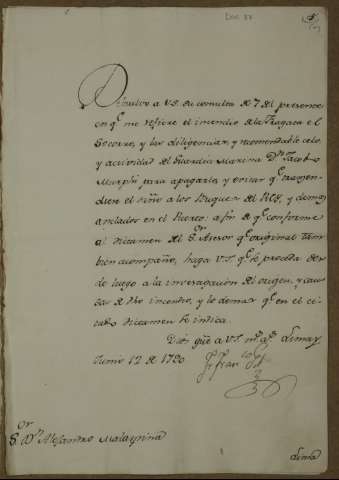 Doc 87
Debuelvo a V.S. su consulta de 7 del presente
en q.e me refiere el incendio de la Fragata el
Socorro, y las diligencias, y recomendable celo,
y actividad del Guardia Marina D.n Jacobo
Murphi para apagarla, y evitar q.e
el a los Buques del Rey, y demas
anclados en el Puerto: a fin de q.e conforme
al dictamen del S.or Asesor q.e original tam
bien acompaño, haga V.S. q.e se proceda des
de luego a la investigacion del origen, y cau
sas de dho incendio, y lo demas q.e en el ci
tado dictamen se indica.
Dios güe a V.S. m.s a.s Lima y
Junio 12 de 1790
S.or D.n Alejandro Malaspina
Lima